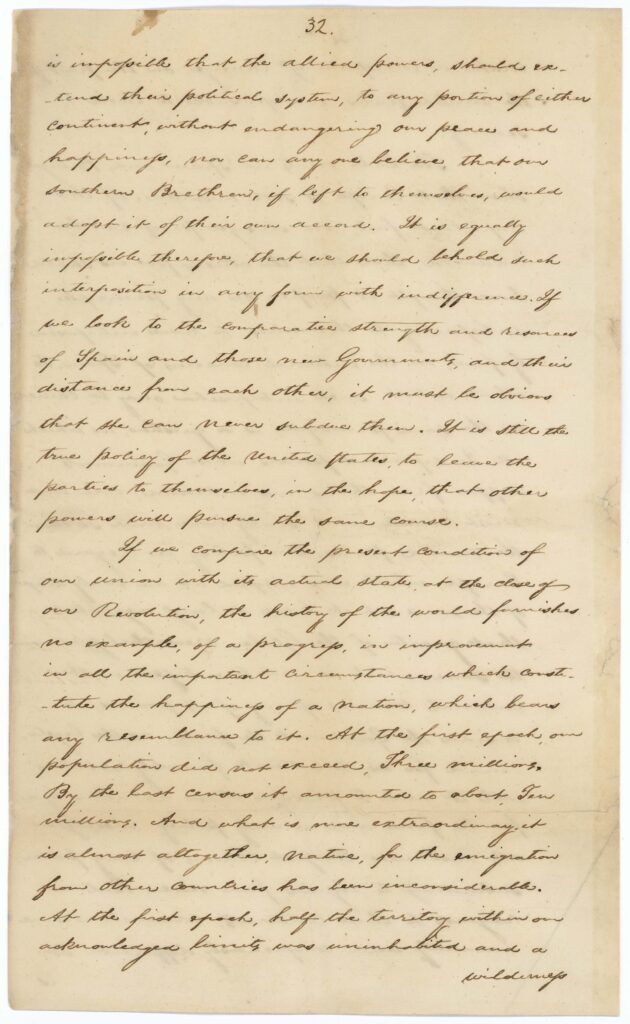 32.
is impossible that the allied powers, should ex-
-tend their political system, to any portion of either
continent, without endangering our peace and
happiness, nor can any one believe, that our
southern Brethren, if left to themselves, would
adopt it of their own accord. It is equally
impossible therefore, that we should behold such
interposition in any form with indifference. If
we look to the comparative strength and resources
of Spain and those new Governments, and their
distance from each other, it must be obvious
that she can never subdue them. It is still the
true policy of the United States, to leave the
parties to themselves, in the hope, that other
powers will pursue the same course.
If we compare the present condition of
our union with its actual state at the close of
our Revolution, the history of the world furnishes
no example, of a progress, in improvement
in all the important circumstances which consti-
-tute the happiness of a nation, which bears
any resemblance to it. At the first epoch, our
population did not exceed, Three millions.
By the last census it amounted to about Ten
millions. And what is more extraordinary, it
is almost altogether, native, for the emigration
from other countries has been inconsiderable.
At the first epoch, half the territory within our
acknowledged limits was uninhabited and a
wilderness